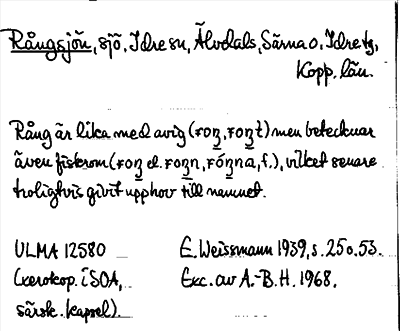 Rångsjön, sjö, Idre sn, Älvdals, Särna o. Idre tg,
Kopp. län.
Rång är lika med avig (roŋ, roŋt) men betecknar
även fiskrom (roŋ el. roŋn, róŋna, f.), vilket senare
troligtvis givit upphov till namnet.
ULMA 12580 E. Weissmann 1939, s. 25 o. 53.
(xerokop. i SOA, Exc. av A.-B. H. 1968.
särsk. kapsel).